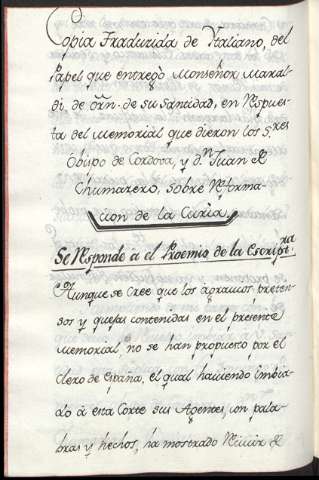 Copia Traducida de Ytaliano, del
Papel que entregò Monseñor Maral-
di, de orn. de su Santidad, en Respues-
ta del Memorial que dieron los S.res
Obispo de Cordova, y d.n Juan
Chumazero, sobre Reforma-
cion de la Curia.
Se Responde à el Proemio de la Escript.ra
Aunque se cree que los agravios preten-
sos y quejas contenidas en el presente
Memorial, no se han propuesto por el
Clero de España, el qual haviendo imbia-
do à esta Corte sus Agentes, con pala-
bras y hechos, ha mostrado